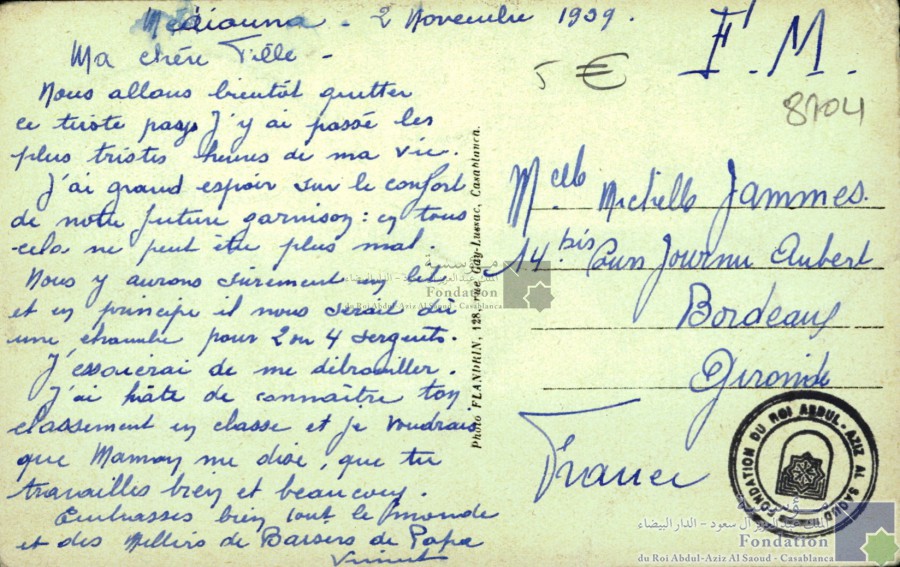 Mediouna - 2 Novembre 1939.
Ma chère Fille -
Nous allons bientôt quitter
ce triste pays J'y ai passé les
plus tristes heures de ma vie.
J'ai grand espoir sur le confort
de notre future garnison : en tous
cela ne peut être plus mal.
Nous y aurons sûrement un lit
et en principe il nous serait dû
une chambre pour 2 ou 4 sergents.
J'essaierai de me débrouiller.
J'ai hâte de connaître ton
classement en classe et je voudrais
que Maman me dise, que tu
travailles bien et beaucoup.
Embrasses bien tout le monde
et des Milliers de Baisers de Papa
Photo FLANDRIN, 128, rue Gay-Lussac, Casablanca.
5 €
F. M.
8704
Melle Michelle Jammes.
14 bis Cours Journu Aubert
Bordeaux
Gironde
France
FONDATION DU ROI ABDUL-AZIZ AL SAOUD
مؤسسة
الملك عبد العزيز آل سعود - الدار البيضاء
Fondation
du Roi Abdul-Aziz Al Saoud - Casablanca
مؤسسة
الملك عبد العزيز آل سعود - الدار البيضاء
Fondation
du Roi Abdul-Aziz Al Saoud - Casablanca